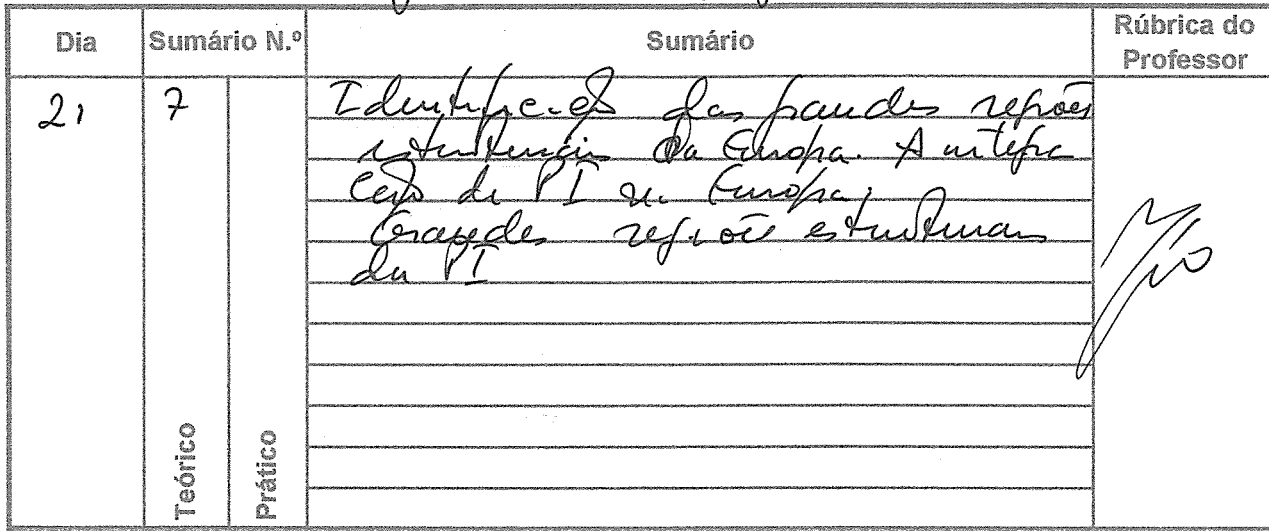 Dia Sumário N.º Sumário Rúbrica do Professor
21 7 Identificação das grandes regiões
estruturais da Europa. A integra
ção da PI na Europa.
Grandes regiões estruturais
da PI
Teórico Prático